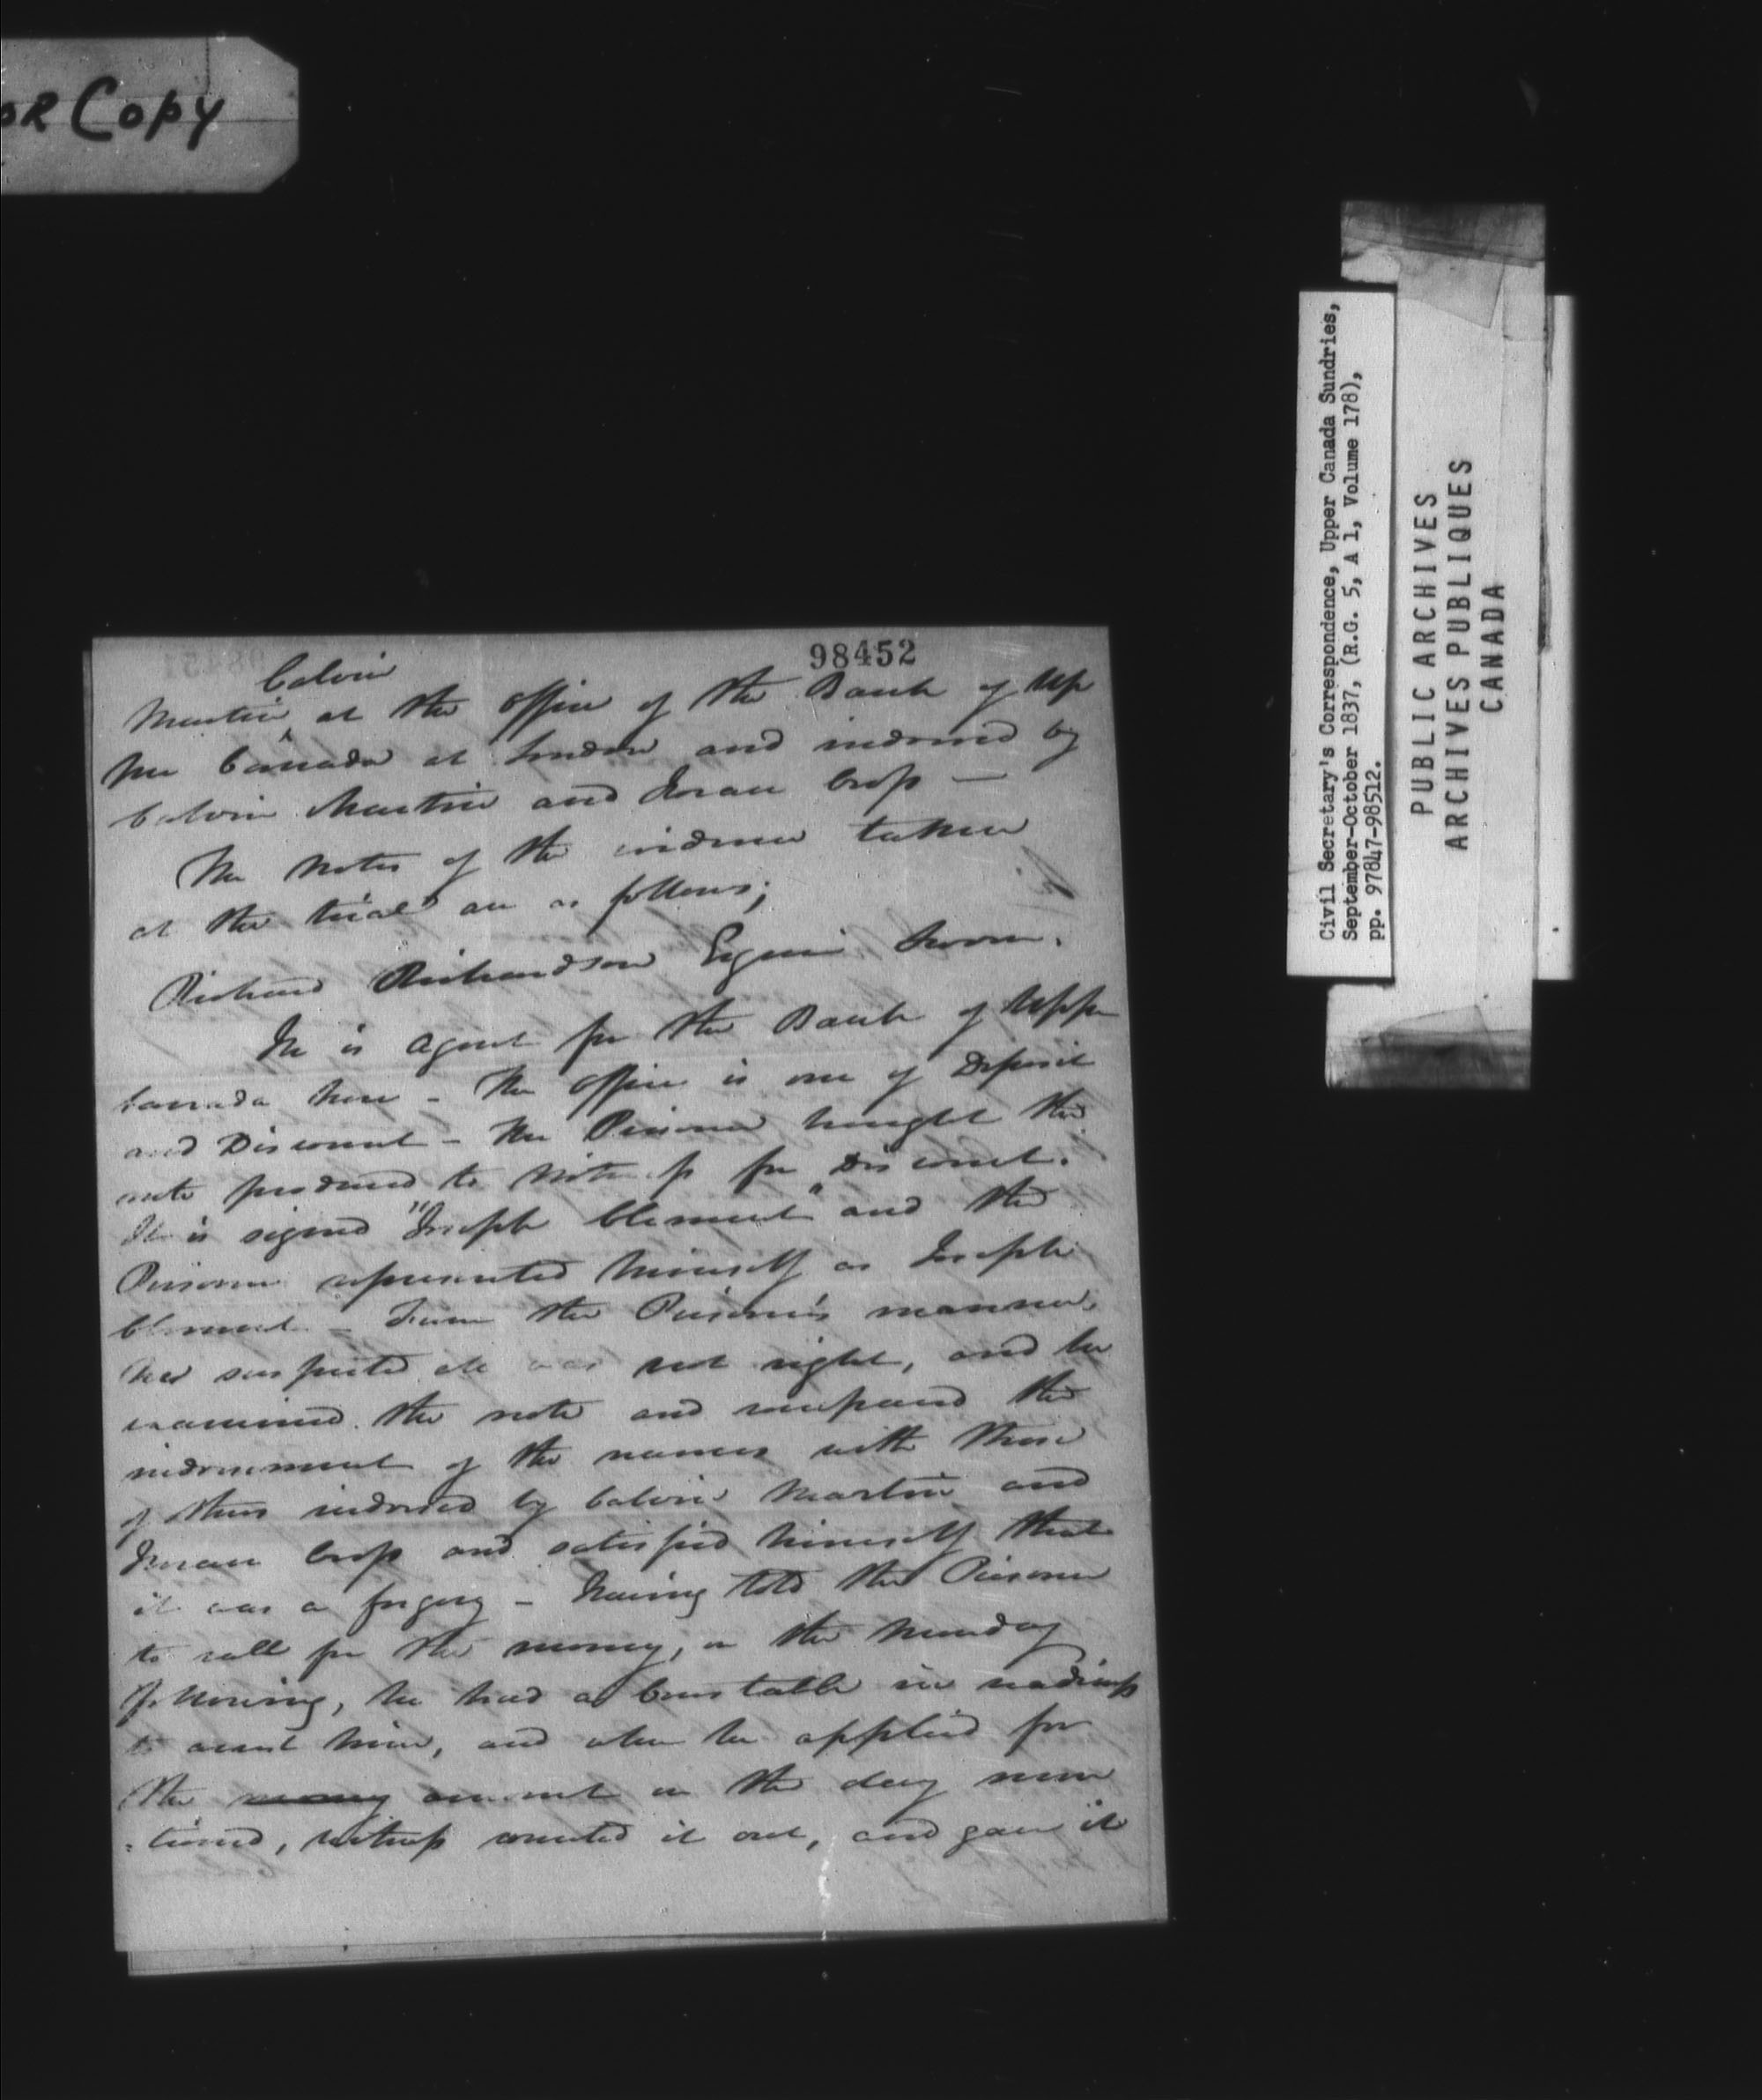 OR Copy
98452
Calvin
Martin at the Office of the Bank of Up
per Canada at London and indorsed by
Calvin Martin and Isaac Cross —
The notes of the evidence taken
at the trial are as follows;
Richard Richardson Esquire Sworn.
He is Agent for the Bank of Upper
Canada here - The Office is one of Deposit
and Discount - The Prisoner brought the
note produced to Witness for Discount.
It is signed "Joseph Clement" and the
Prisoner represented himself as Joseph
Clement - From the Prisoner's manner,
he suspected all was not right, and he
examined the note and compared the
indorsement of the names with those
of others indorsed by Calvin Martin and
Isaac Cross and satisfied himself that
it was a forgery - Having told the Prisoner
to call for the money, on the Monday
following, he had a Constable in readiness
to arrest him, and when he applied for
the money amount on the day men
-tioned, witness counted it out, and gave it
Civil Secretary's Correspondence, Upper Canada Sundries,
September-October 1837, (R.G. 5, A 1, Volume 178),
pp. 97847-98512.
PUBLIC ARCHIVES
ARCHIVES PUBLIQUES
CANADA